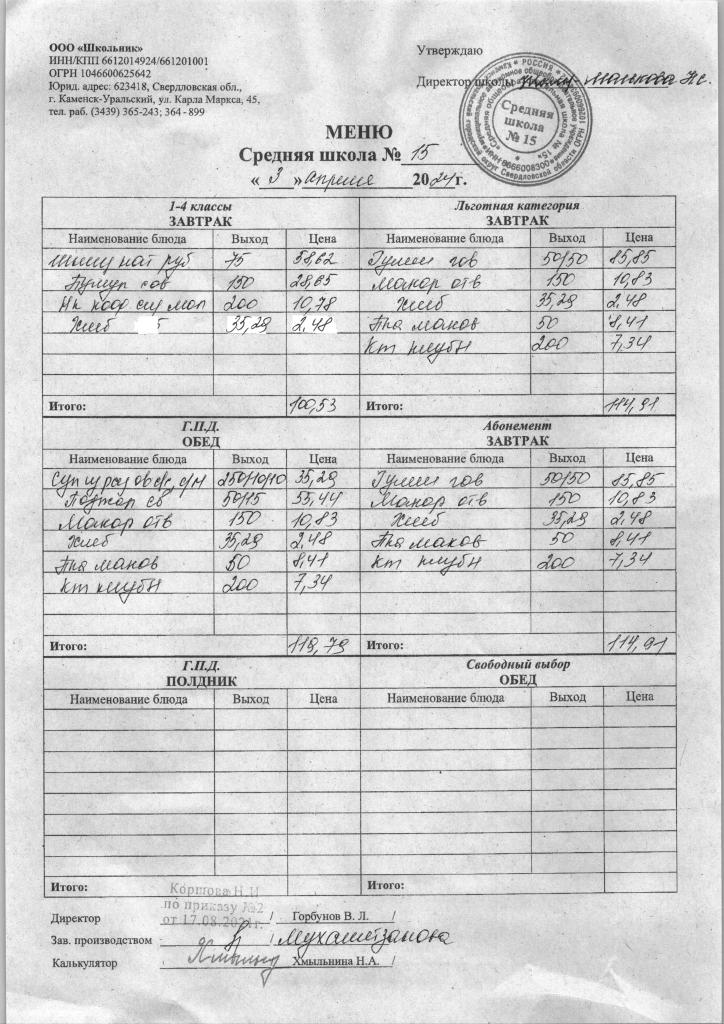 ООО «Школьник»
ИНН/КПП 6612014924/661201001
ОГРН 1046600625642
Юрид. адрес: 623418, Свердловская обл.,
г. Каменск-Уральский, ул. Карла Маркса, 45,
тел. раб. (3439) 365-243; 364 - 899
Утверждаю
Директор школы
Средняя
школа
№ 15
МЕНЮ
Средняя школа № 15
« 3 » апреля 2024г.
1-4 классы
ЗАВТРАК
Наименование блюда Выход Цена
нат руб 75 58,62
сов 150 28,65
200 10,78
Хлеб 35,29 2,48
Итого: 100,53
Льготная категория
ЗАВТРАК
Наименование блюда Выход Цена
Гуляш гов 50/50 85,85
Макар отв 150 10,83
Хлеб 35,29 2,48
маков 50 8,41
Кт клубн 200 7,34
Итого: 114,91
Г.П.Д.
ОБЕД
Наименование блюда Выход Цена
Суп 250/10/10 35,29
Поджар св 50/15 55,44
Макар отв 150 10,83
Хлеб 35,29 2,48
маков 50 8,41
Кт клубн 200 7,34
Итого: 119,79
Абонемент
ЗАВТРАК
Наименование блюда Выход Цена
Гуляш гов 50/50 85,85
Макар отв 150 10,83
Хлеб 35,29 2,48
маков 50 8,41
Кт клубн 200 7,34
Итого: 114,91
Г.П.Д.
ПОЛДНИК
Наименование блюда Выход Цена
Итого:
Свободный выбор
ОБЕД
Наименование блюда Выход Цена
Итого:
по приказу №2
от 17.08.2021г.
Директор / Горбунов В. Л. /
Зав. производством / Мухаметзанова
Калькулятор Хмыльнина Н.А. /